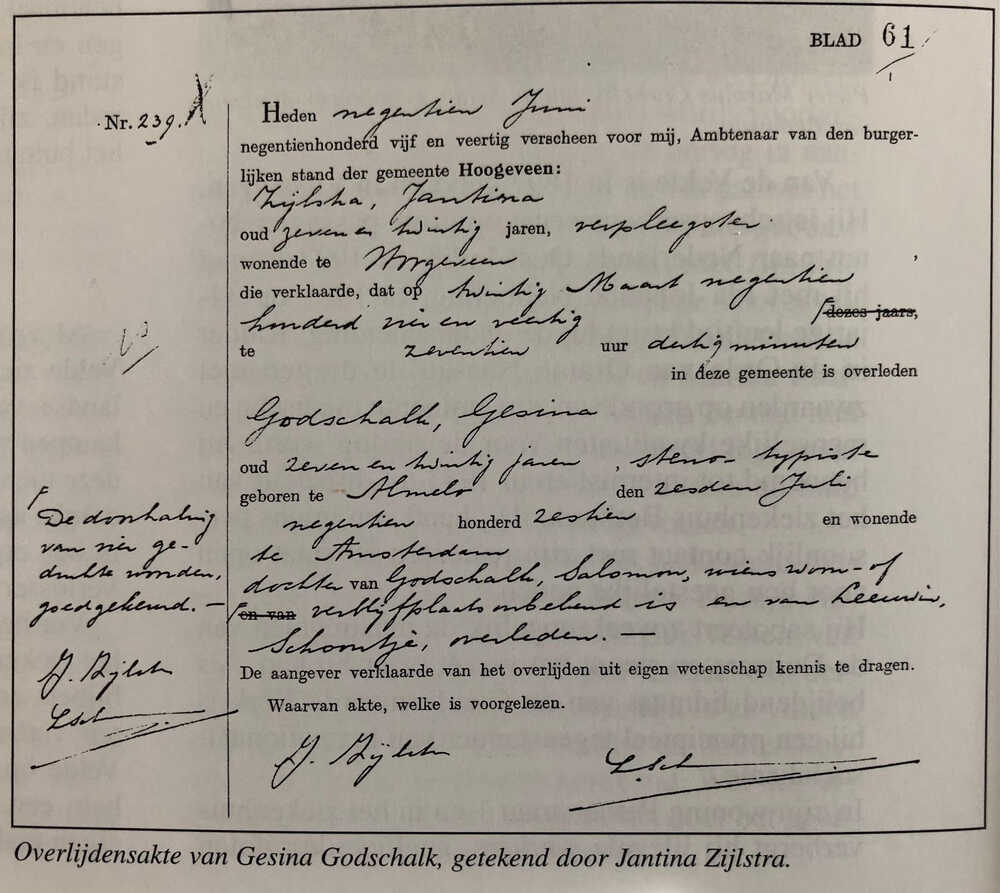 BLAD 61
Nr. 239.
Heden negentien Juni
negentienhonderd vijf en veertig verscheen voor mij, Ambtenaar van den burger-
lijken stand der gemeente Hoogeveen:
Zijlstra, Jantina
oud zeven en twintig jaren, verpleegster.
wonende te Hoogeveen
die verklaarde, dat op twintig Maart negentien
honderd vier en veertig dezes jaars,
te zeventien uur dertig minuten
in deze gemeente is overleden
Godschalk, Gesina
oud zeven en twintig jaren, steno-typiste
geboren te Almelo den zesden Juli
negentien honderd zestien en wonende
te Amsterdam
dochter van Godschalk, Salomon, wiens woon- of
en van verblijfplaats onbekend is en van Leeuwen,
Schoontje, overleden. —
De aangever verklaarde van het overlijden uit eigen wetenschap kennis te dragen.
Waarvan akte, welke is voorgelezen.
J. Zijlstra
De doorhaling
van vier ge-
drukte woorden,
goedgekeurd. —
J. Zijlstra
Overlijdensakte van Gesina Godschalk, getekend door Jantina Zijlstra.